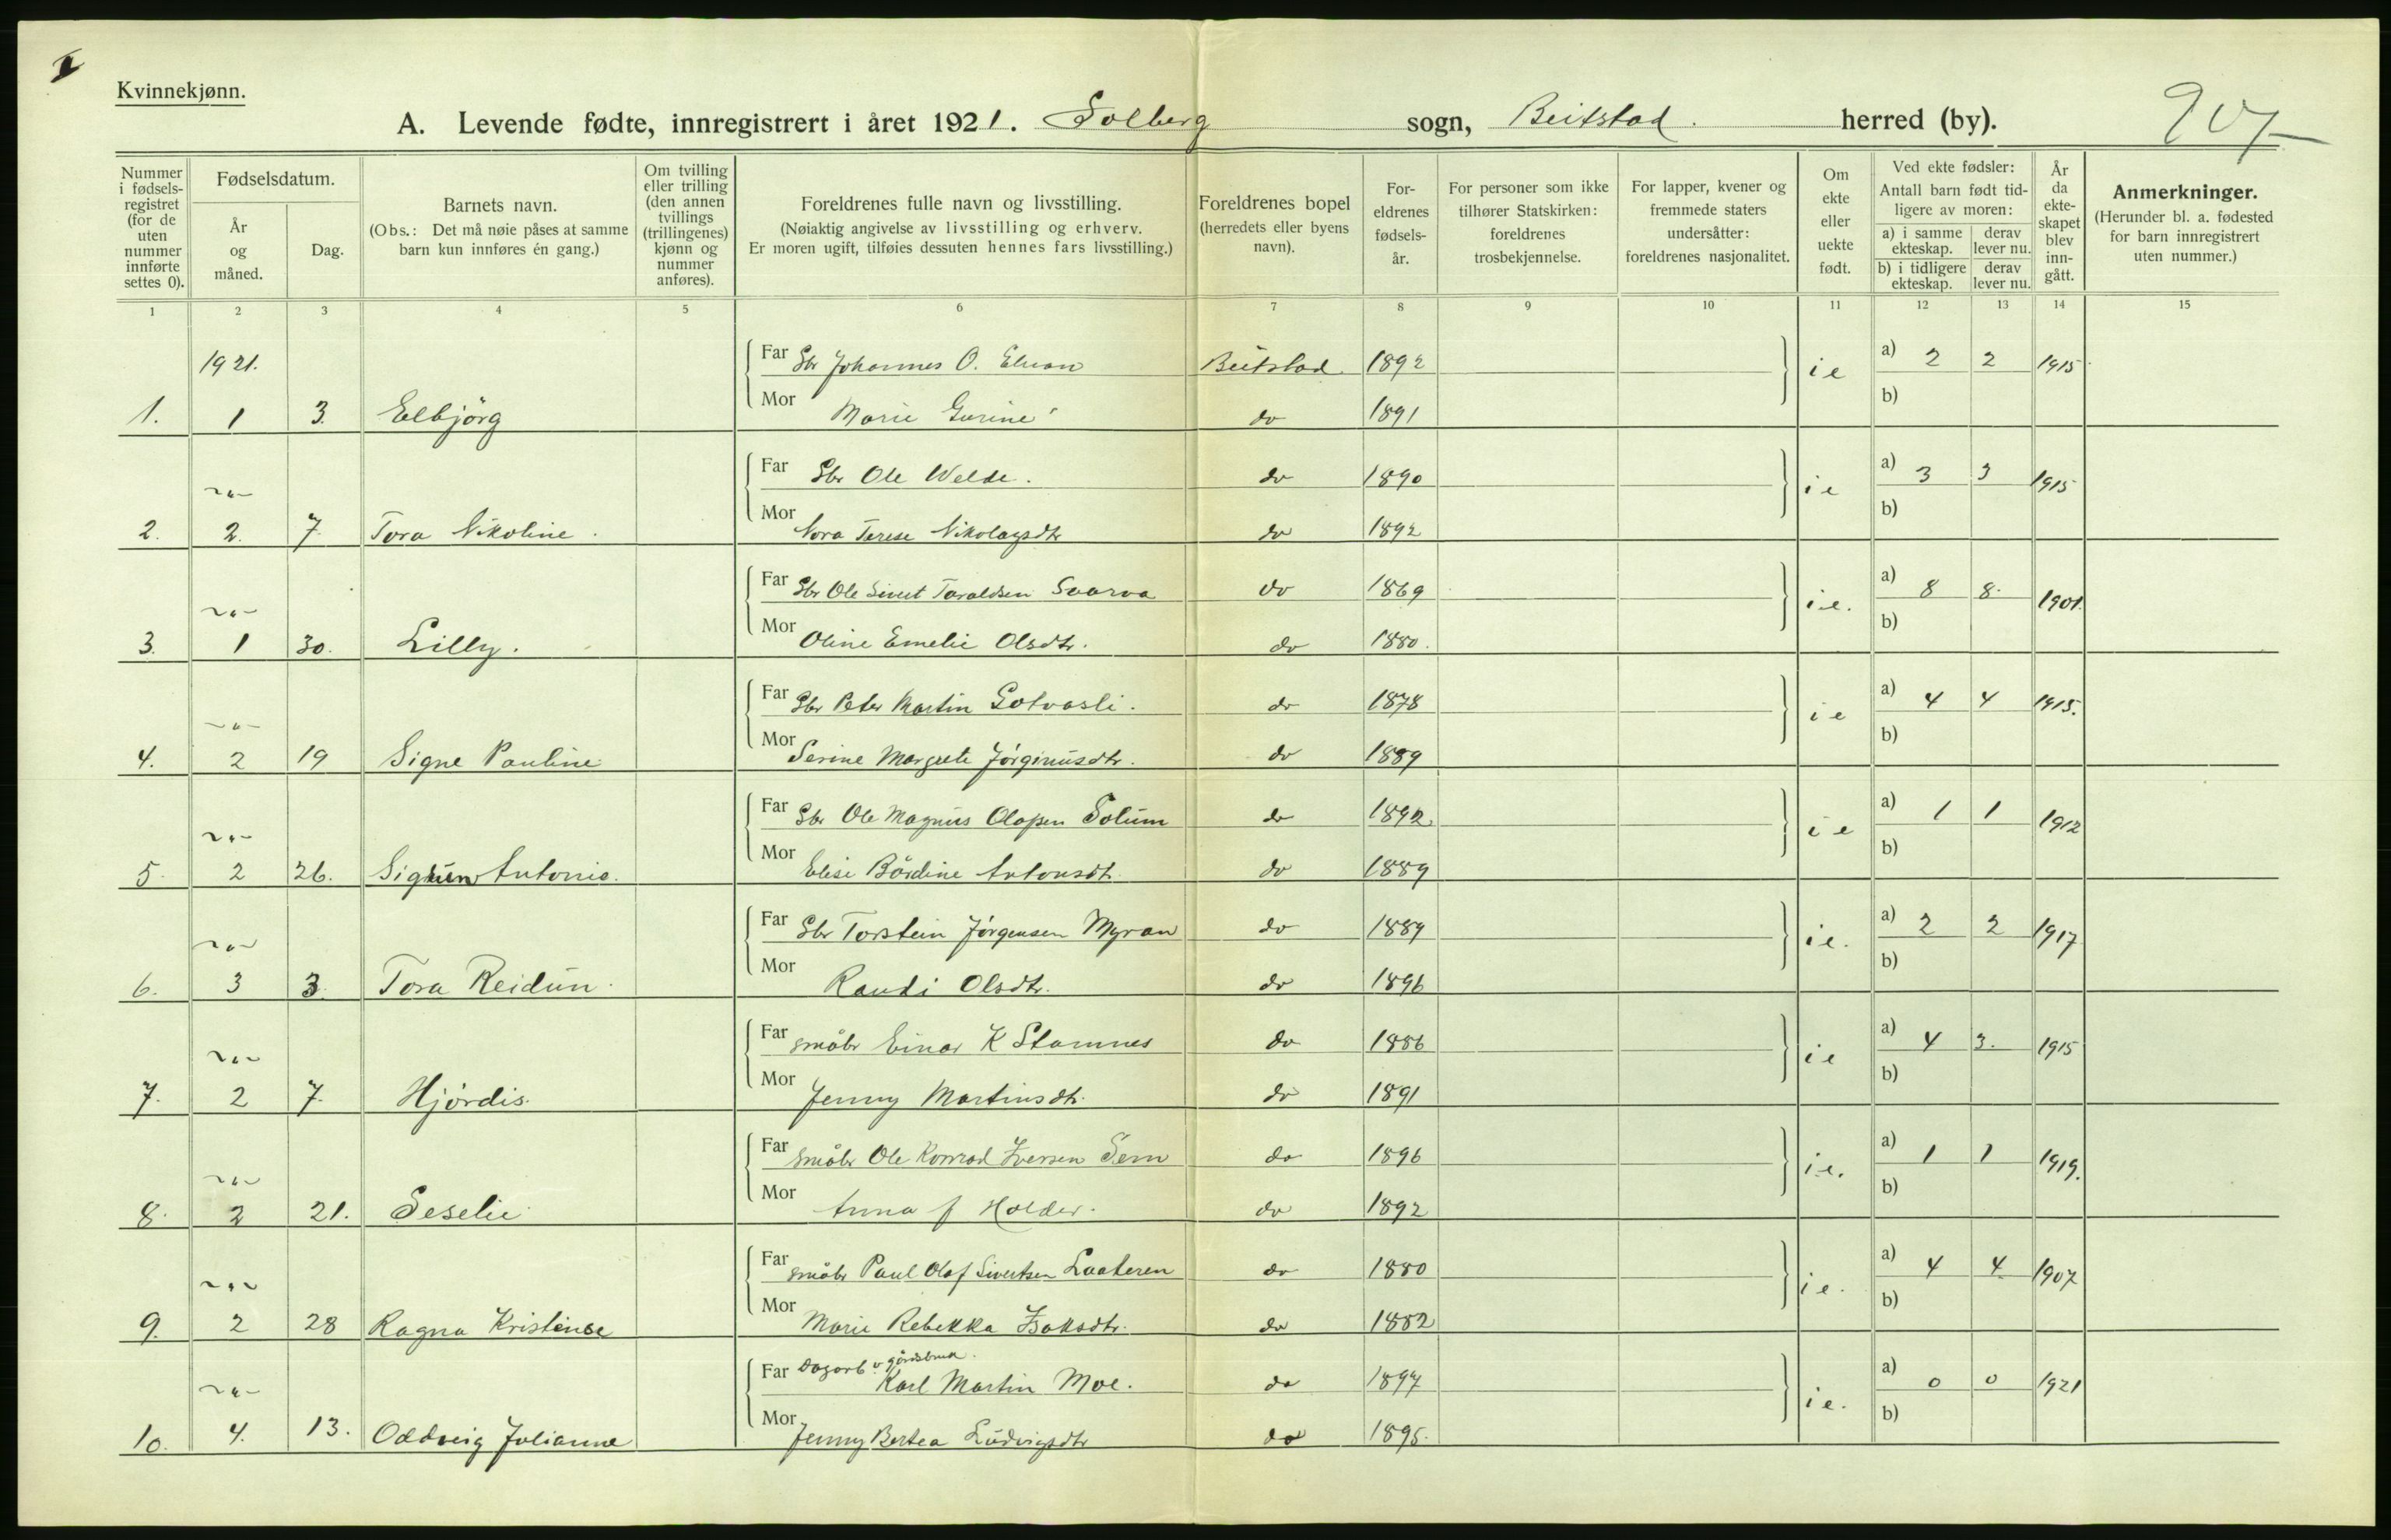 Kvinnekjønn.
A. Levende fødte, innregistrert i året 1921. Solberg sogn, Beitstad. herred (by).
Nummer i fødsels-registret (for de uten nummer innførte settes 0).
Fødselsdatum.
År og måned.
Dag.
Barnets navn.
(Obs.: Det må nøie påses at samme barn kun innføres én gang.)
Om tvilling eller trilling (den annen tvillings (trillingenes) kjønn og nummer anføres).
Foreldrenes fulle navn og livsstilling.
(Nøiaktig angivelse av livsstilling og erhverv.
Er moren ugift, tilføies dessuten hennes fars livsstilling.)
Foreldrenes bopel (herredets eller byens navn).
For-eldrenes fødsels-år.
For personer som ikke tilhører Statskirken: foreldrenes trosbekjennelse.
For lapper, kvener og fremmede staters undersåtter: foreldrenes nasjonalitet.
Om ekte eller uekte født.
Ved ekte fødsler:
Antall barn født tid-ligere av moren:
a) i samme ekteskap.
derav lever nu.
b) i tidligere ekteskap.
derav lever nu.
År da ekte-skapet blev inn-gått.
Anmerkninger.
(Herunder bl. a. fødested for barn innregistrert uten nummer.)
1 2 3 4 5 6 7 8 9 10 11 12 13 14 15
1921. Far Gbr Johannes O. Elnan Beitstad 1892 ie a) 2 2 1915
1. 1 3. Eelbjörg Mor Marie Gurine do 1891 b)
Far Gbr Ole Welde. do 1890 ie a) 3 3 1915
2. 2. 7 Tora Nikoline. Mor Nora Terese Nikolaysdtr do 1892 b)
Far Gbr Ole Sivert Taraldsen Saarva do 1869 ie. a) 8 8. 1901.
3. 1 30. Lilly. Mor Oline Emelie Olsdtr. do 1880. b)
Far Gbr Peter Martin Gotvasli. do 1878 ie a) 4 4 1915.
4. 2 19 Signe Pauline Mor Serine Margrete Jørginusdtr. do 1889 b)
Far Gbr Ole Magnus Olaysen Solum do 1892. ie a) 1 1 1912
5. 2 26. Sigrun Antonie. Mor Elise Bårdine Antonsdtr. do 1889 b)
Far Gbr Torstein Jørgensen Myran do 1889 ie. a) 2 2 1917
6. 3 3. Tora Reidun. Mor Randi Olsdtr. do 1896 b)
Far småbr Einar K Stamnes do 1886 ie a) 4 3. 1915
7. 2 7. Hjördis. Mor Jenny Martinsdtr. do 1891 b)
Far småbr Ole Konrad Iversen Sem do 1896 ie. a) 1 1 1919.
8. 2 21. Seselie Mor Anna f Holder. do 1892 b)
Far småbr Paul Olaf Sivertsen Laateren do 1880 ie. a) 4 4 1907
9. 2 28 Ragna Kristense Mor Marie Rebekka Isaksdtr. do 1882 b)
Far Dagarb v gårdsbruk. Karl Martin Moe. do 1897 ie. a) 0 0 1921
10. 4. 13. Oddveig Julianne Mor Jenny Bertea Ludvigsdtr do 1895. b)